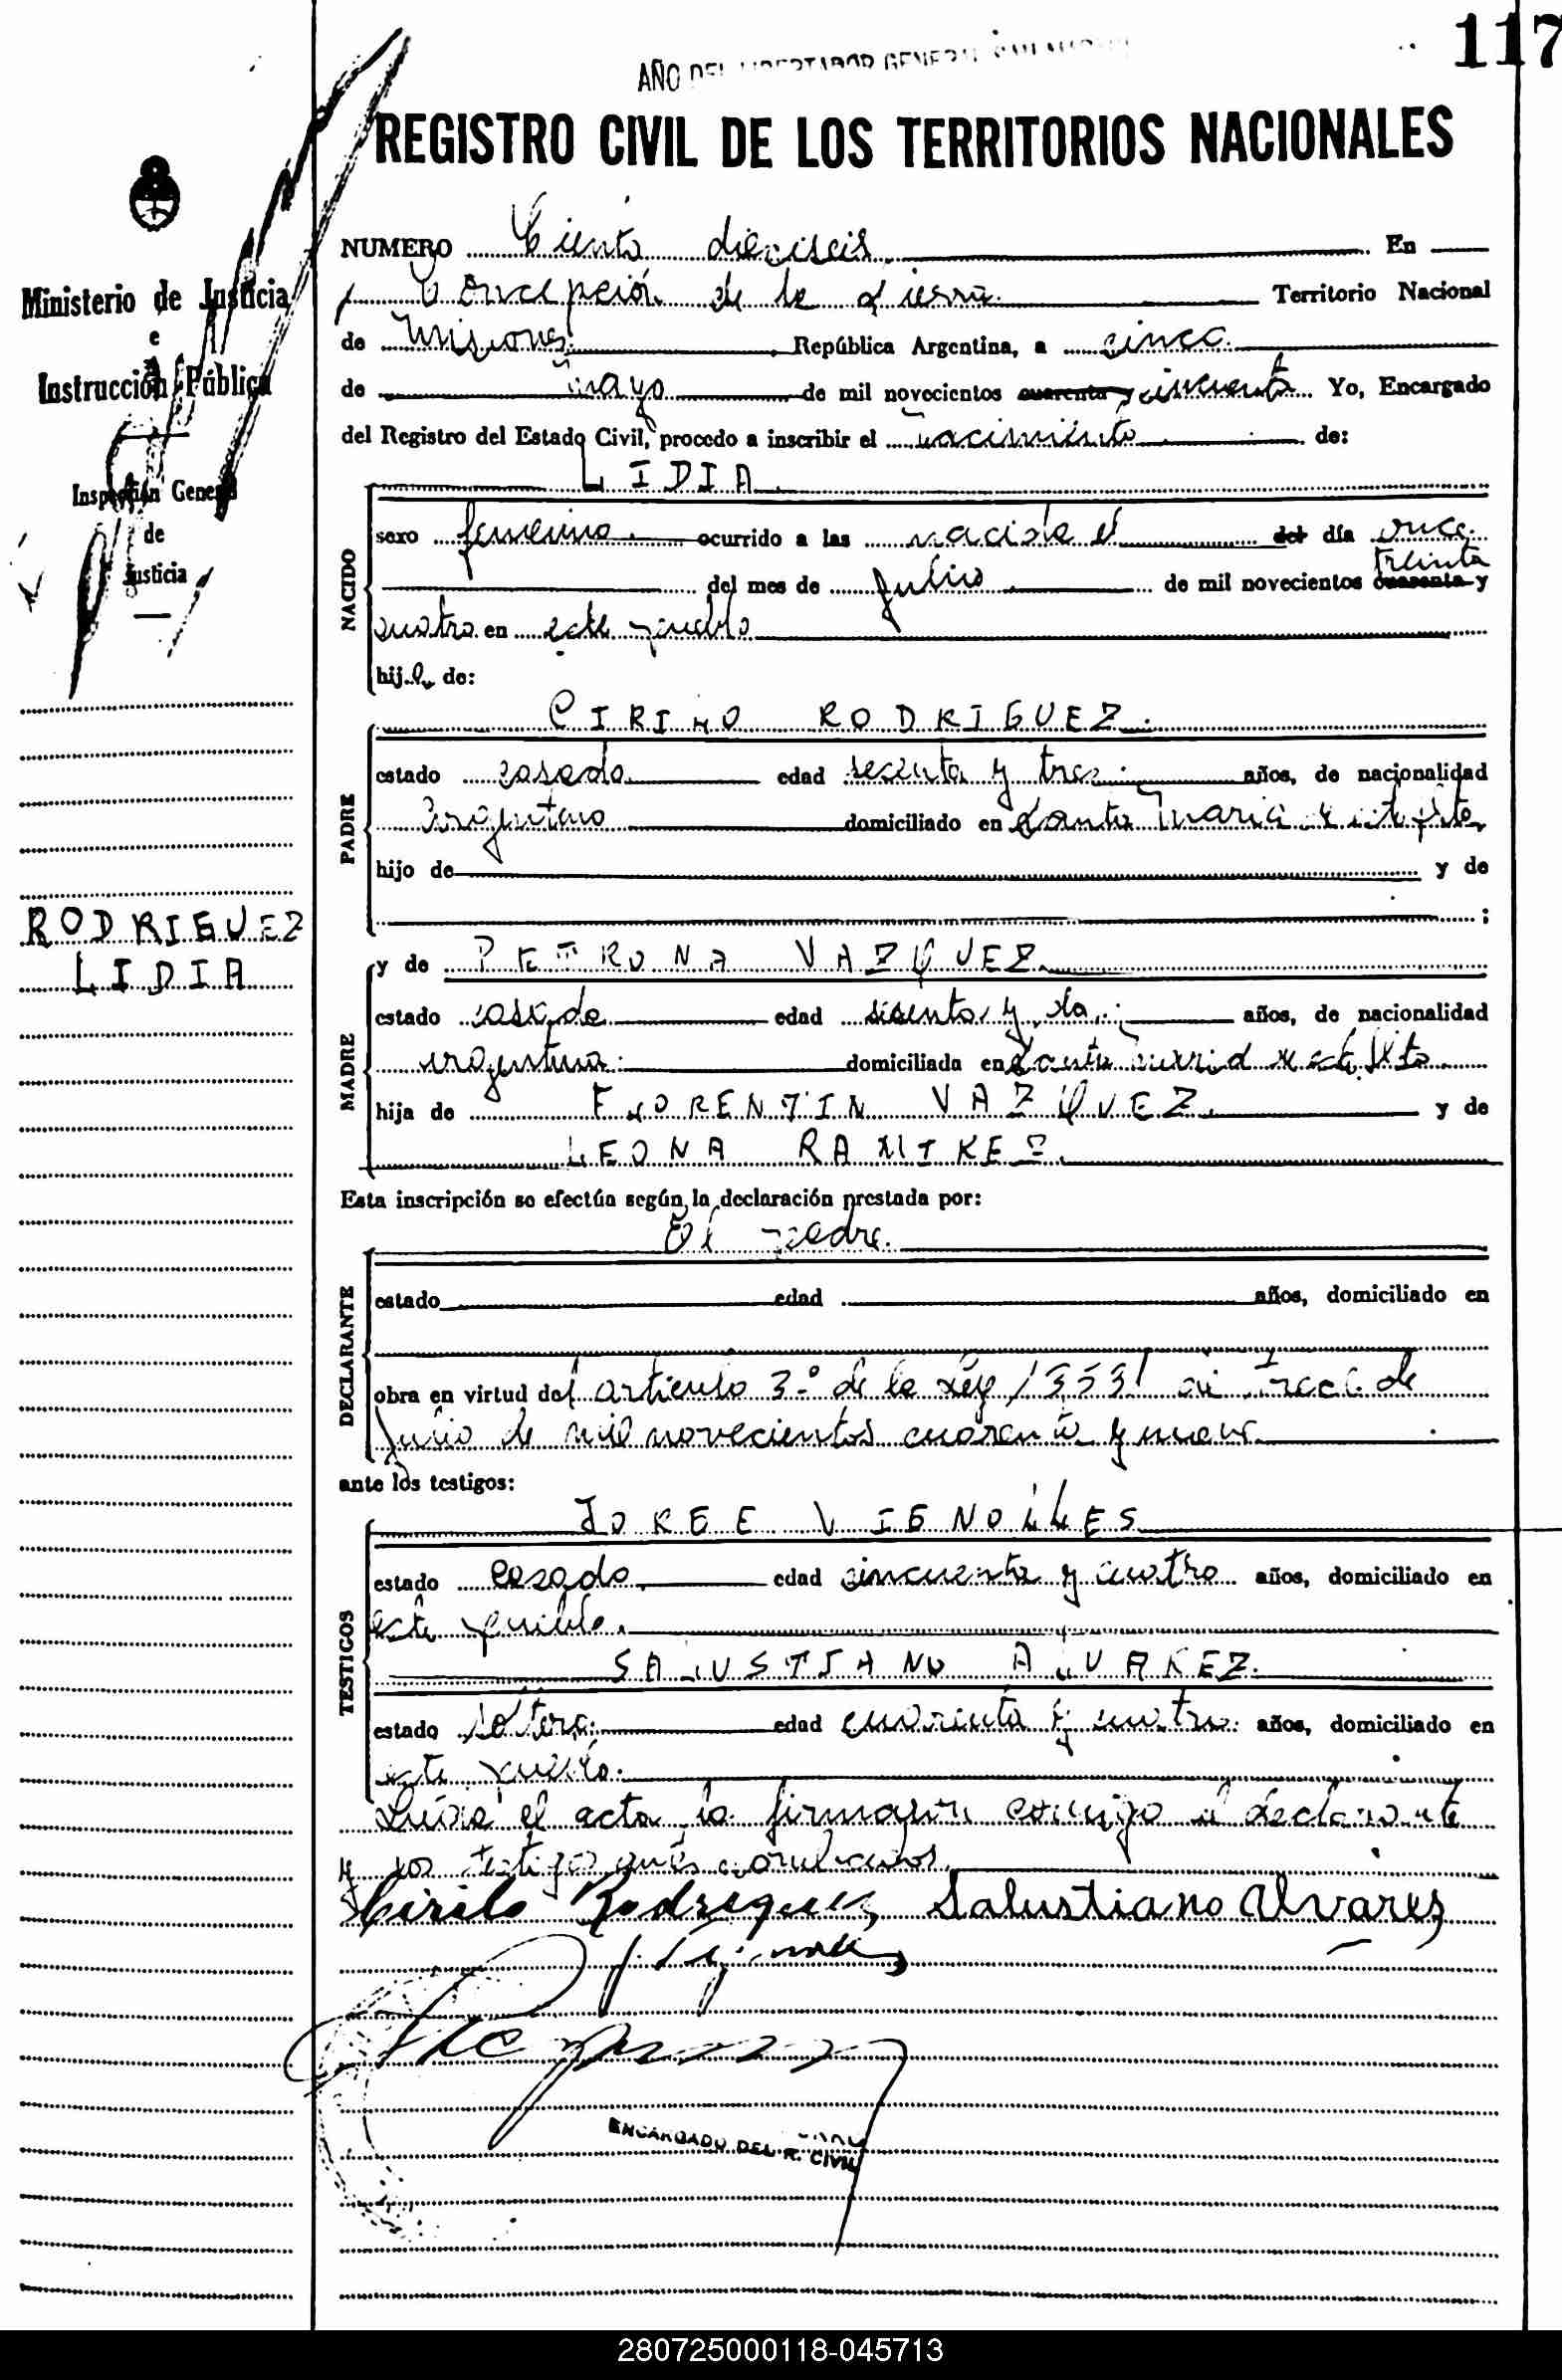 117
AÑO DEL LIBERTADOR GENERAL
REGISTRO CIVIL DE LOS TERRITORIOS NACIONALES
Ministerio de Justicia
e
Instrucción Pública
Inspección General
de
Justicia
RODRIGUEZ
LIDIA
NUMERO Ciento dieciseis En
Concepción de la Sierra Territorio Nacional
de Misiones República Argentina, a cinco
de mayo de mil novecientos cuarenta y cincuenta Yo, Encargado
del Registro del Estado Civil, procedo a inscribir el nacimiento de:
LIDIA
NACIDO
sexo femenino ocurrido a las nacida el del día once
del mes de Julio de mil novecientos cuarenta y treinta
cuatro en este pueblo
hija de:
CIRILO RODRIGUEZ
PADRE
estado casado edad sesenta y tres años, de nacionalidad
Argentino domiciliado en Santa Maria
hijo de y de
;
y de PETRONA VAZQUEZ
MADRE
estado casada edad sesenta y dos años, de nacionalidad
argentina domiciliada en Santa Maria
hija de FLORENTIN VAZQUEZ y de
LEONA RAMIREZ
Esta inscripción se efectúa según la declaración prestada por:
El padre.
DECLARANTE
estado edad años, domiciliado en
obra en virtud del articulo 3.º de la Ley 13531 de
Julio de mil novecientos cuarenta y nueve
ante los testigos:
JORGE VIGNOLLES
TESTIGOS
estado casado edad cincuenta y cuatro años, domiciliado en
este pueblo.
SALUSTIANO ALVAREZ.
estado soltero edad cuarenta y cuatro años, domiciliado en
este pueblo.
Leida el acta la firmaron conmigo el declarante
y los testigos
Cirilo Rodriguez Salustiano Alvarez
ENCARGADO DEL R. CIVIL
280725000118-045713